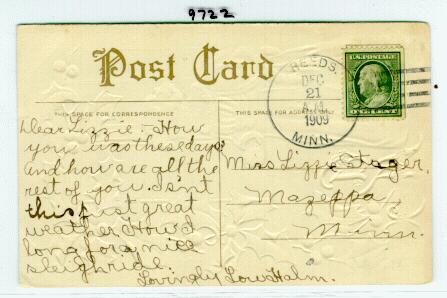 9722
Post Card
THIS SPACE FOR CORRESPONDENCE
THIS SPACE FOR ADDRESS
REEDS,
DEC
21
A.M.
1909
MINN.
U.S. POSTAGE
ONE CENT
Dear Lizzie:- How
you was these days?
and how are all the
rest of you. Isn't
this just great
weather. How I
long for a nice
sleighride.
Lovingly Lou Halm.
Miss Lizzie Stager,
Mazeppa,
Minn.